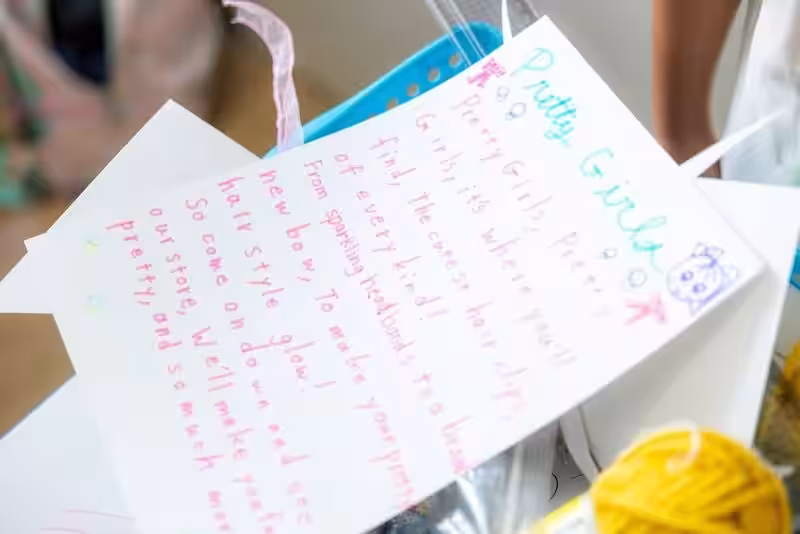 Pretty Girls
Pretty Girls, Pretty
Girls, it's where you'll
find, The cutest hair clips,
of every kind!
From sparkling headbands to a
new bow, To make your
hair style glow!
So come on down and see
our store, We'll make
pretty, and so much